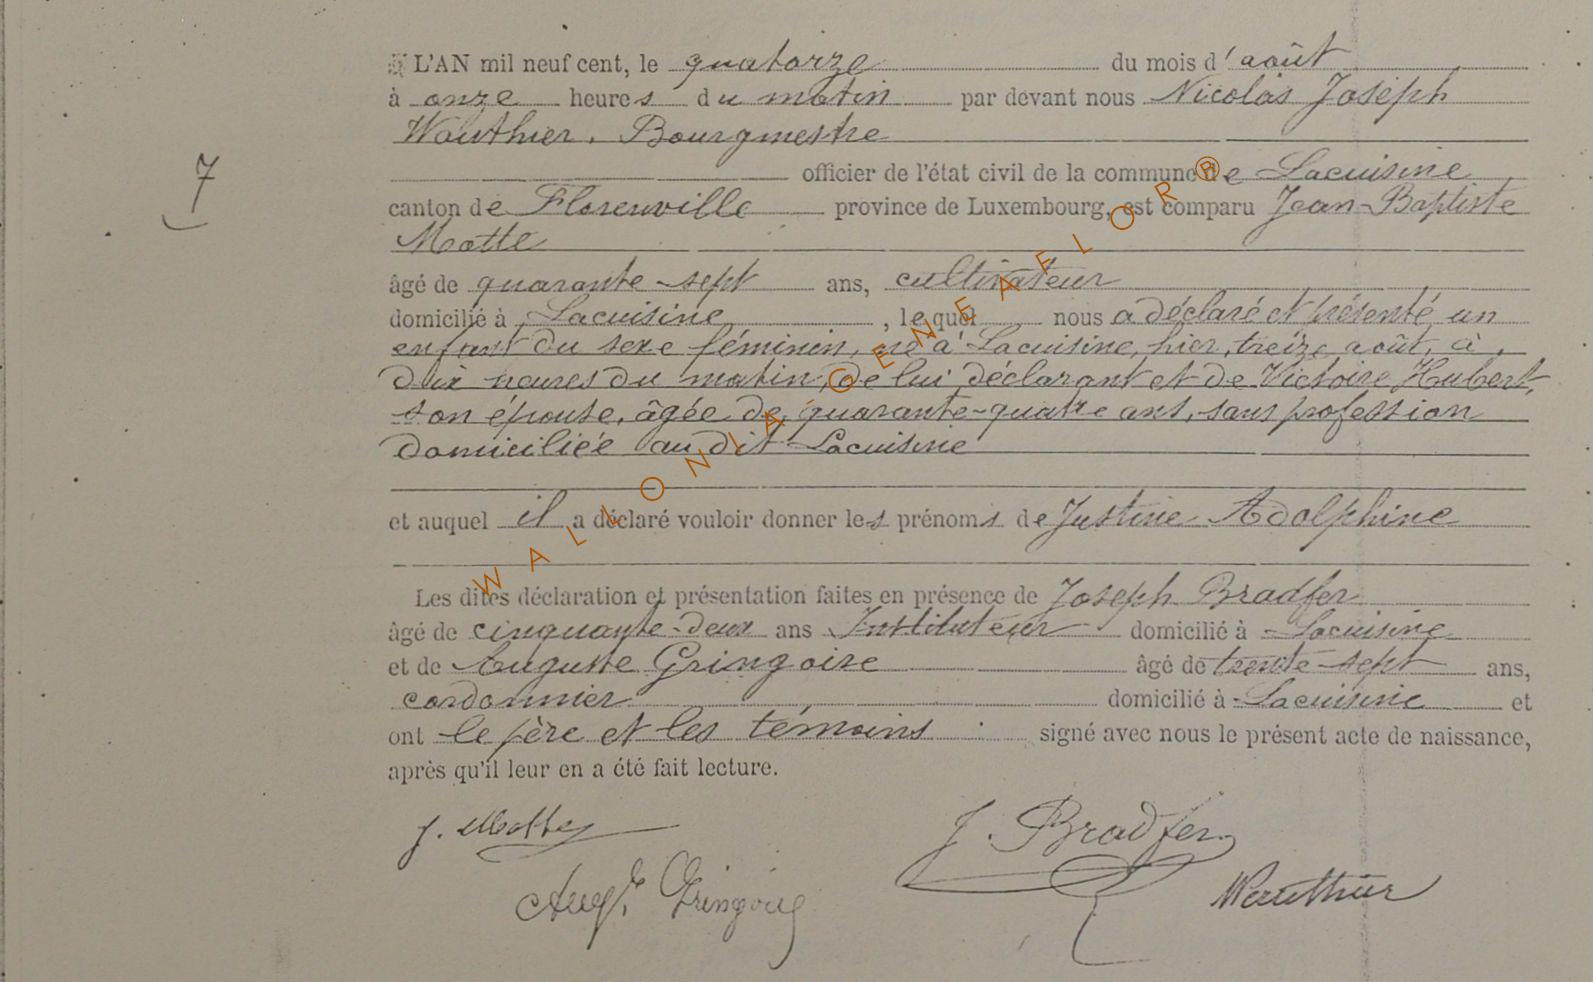 L'AN mil neuf cent, le quatorze du mois d'août
à onze heures du matin par devant nous Nicolas Joseph
Wauthier, Bourgmestre
officier de l'état civil de la commune de Lacuisine
7
canton de Florenville province de Luxembourg, est comparu Jean-Baptiste
Motte
âgé de quarante-sept ans, cultivateur
domicilié à Lacuisine, lequel nous a déclaré et présenté un
enfant du sexe féminin, né à Lacuisine, hier, treize août, à
dix heures du matin, de lui déclarant et de Victoire Hubert,
son épouse, âgée de quarante-quatre ans, sans profession
domiciliée au dit Lacuisine
et auquel il a déclaré vouloir donner les prénoms de Justine Adolphine
Les dites déclaration et présentation faites en présence de Joseph Bradfer
âgé de cinquante-deux ans Instituteur domicilié à Lacuisine
et de Auguste Gringoire âgé de trente-sept ans,
cordonnier domicilié à Lacuisine et
ont le père et les témoins signé avec nous le présent acte de naissance,
après qu'il leur en a été fait lecture.
J. Motte
J. Bradfer
Augte Gringoire
Wauthier
WALLONIA-GENEAFLOR®